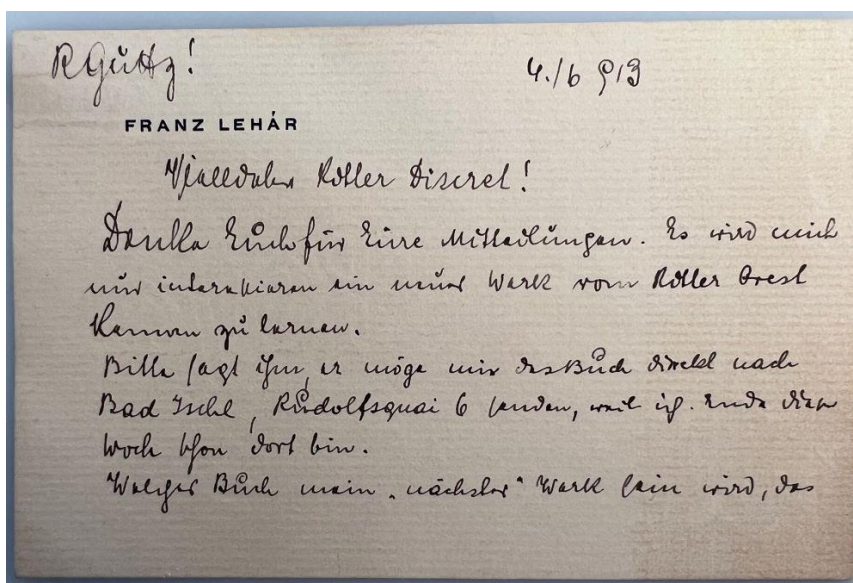 RGuHz! 4./6 913
FRANZ LEHÁR
Vielledler Ritter Discret!
Danke Euch für Eure Mitteilungen. Es wird mich
nur interessieren ein neues Werk vom Ritter Orest
kennen zu lernen.
Bitte sagt ihm, er möge mir das Buch direkt nach
Bad Ischl, Rudolfsquai 6 senden, weil ich Ende dieser
Woche schon dort bin.
Welches Buch mein „nächstes" Werk sein wird, das